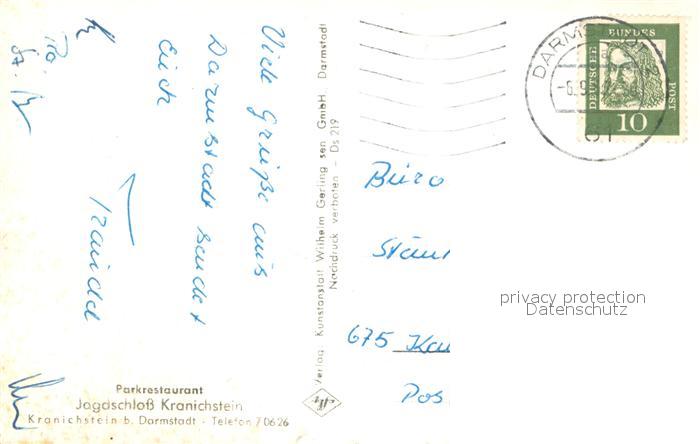 Viele Grüße aus
Darmstadt sendet
Euch
Traudel
Parkrestaurant
Jagdschloß Kranichstein
Kranichstein b. Darmstadt - Telefon 70626
Verlag: Kunstanstalt Wilhelm Gerling sen. GmbH. Darmstadt
Nachdruck verboten - Ds 219
DEUTSCHE
BUNDES
POST
10
DARMSTADT
61
Büro
675
Pos
privacy protection
Datenschutz